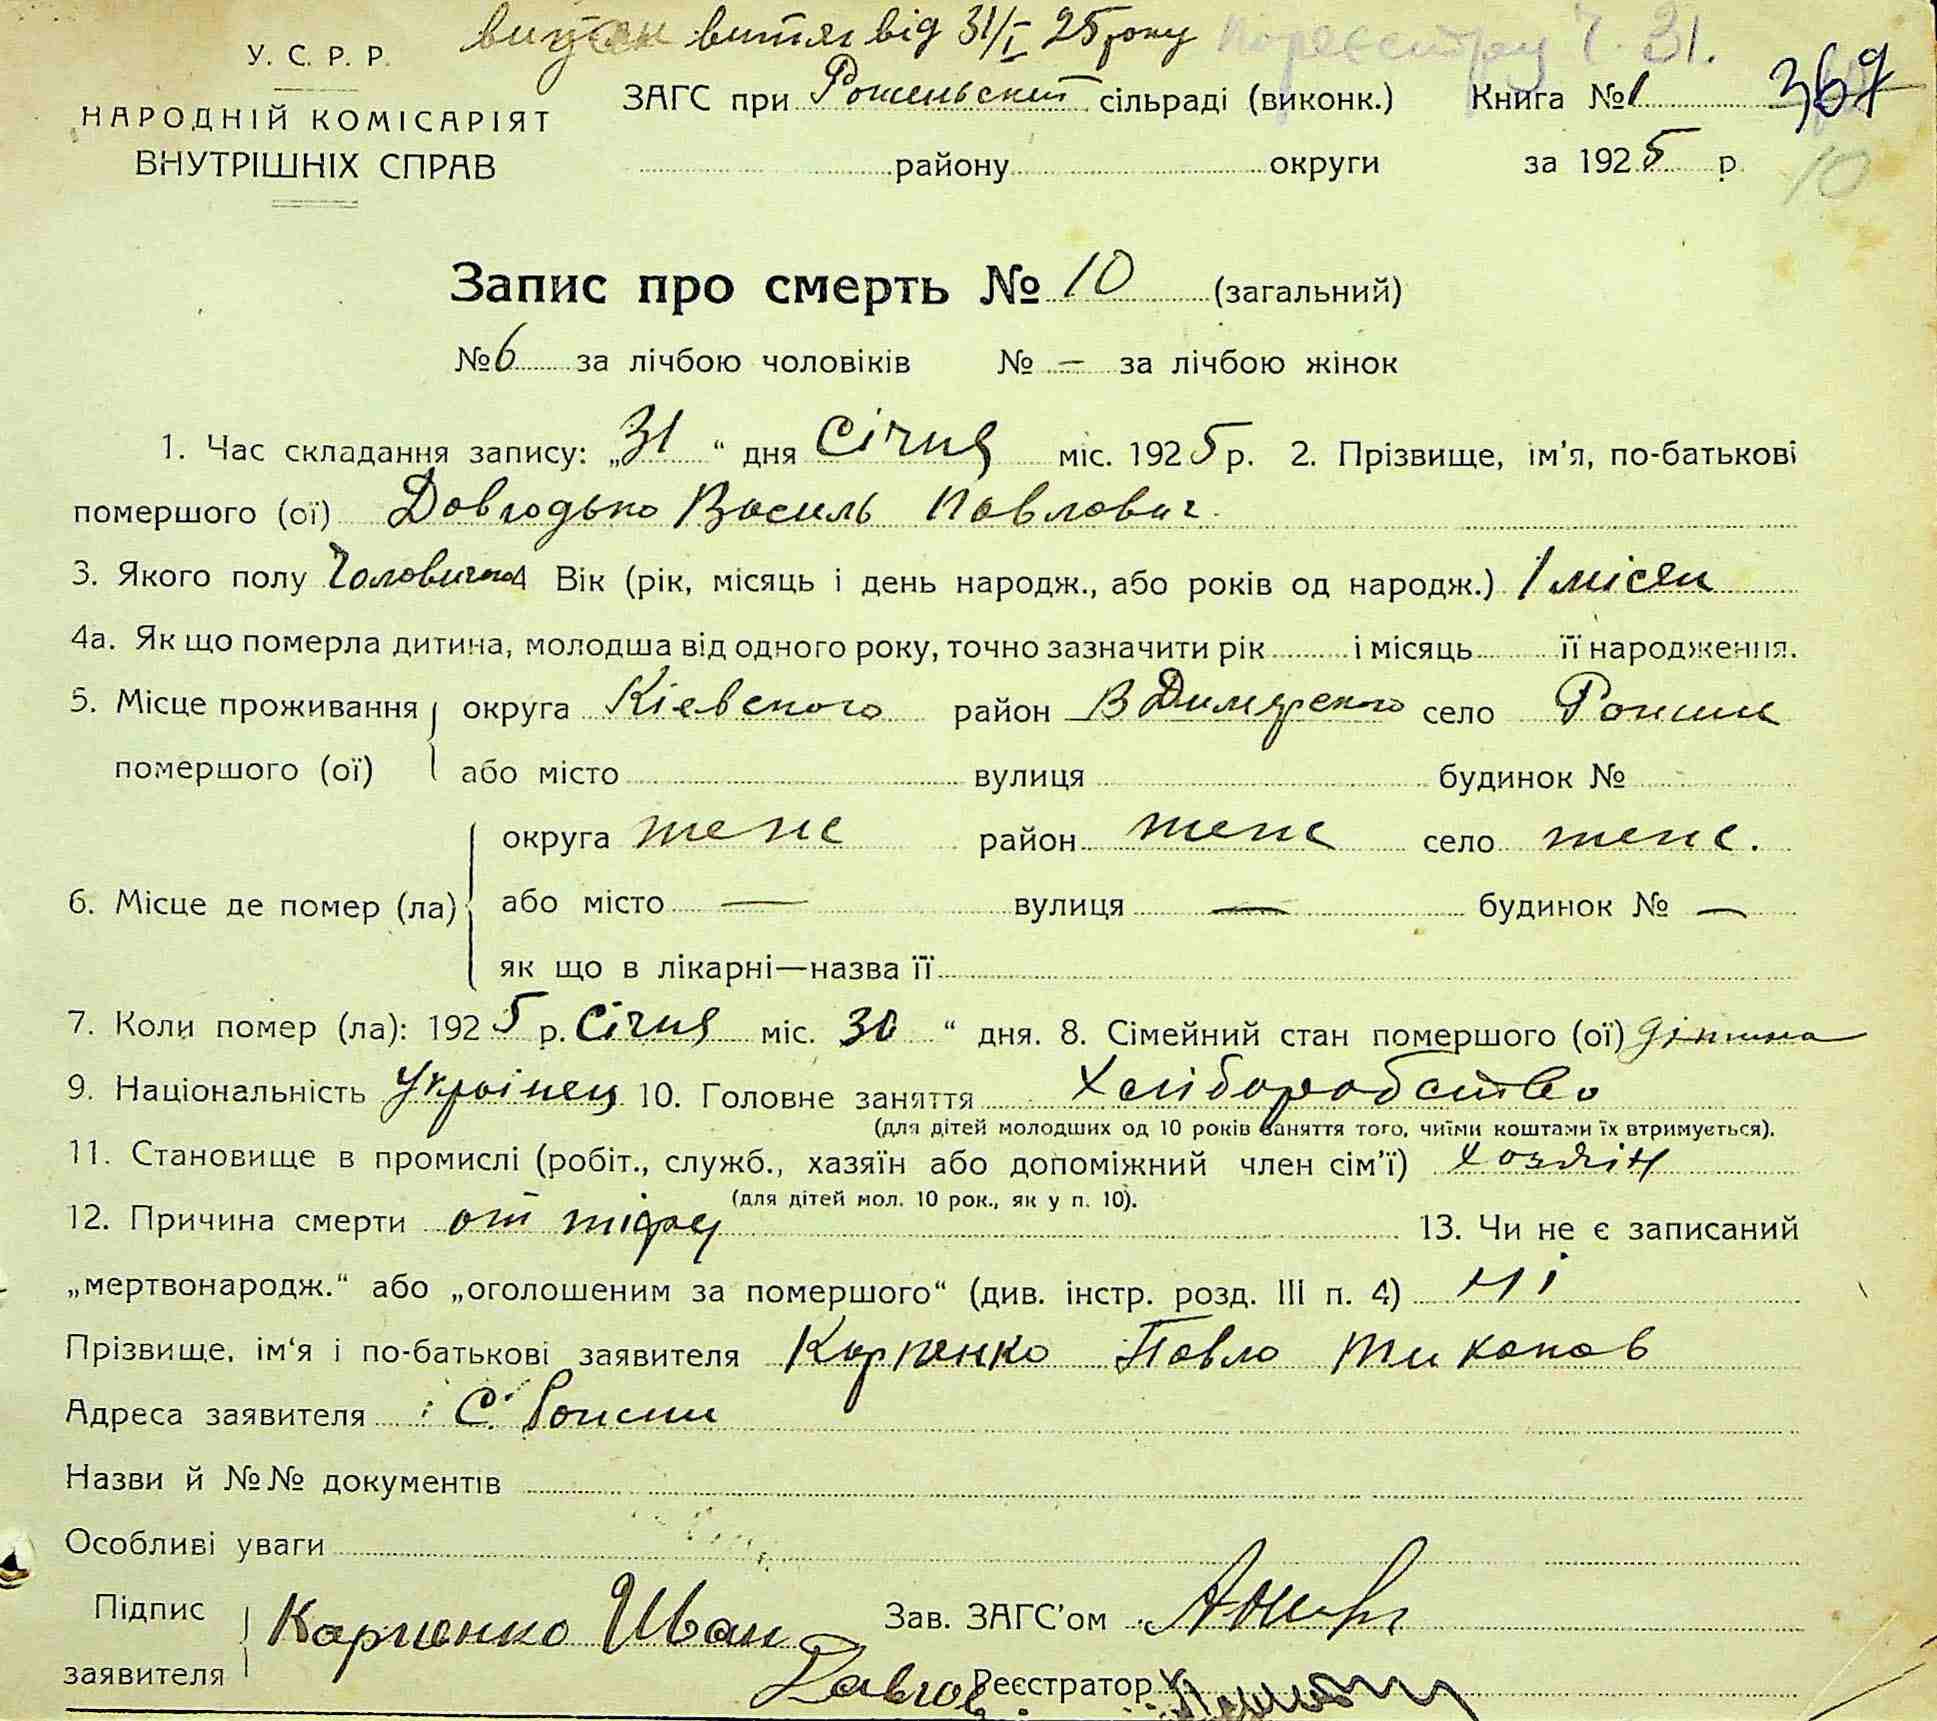 витяг від 31/I 25 року По реєстру Ч. 31.
У. С. Р. Р.
НАРОДНІЙ КОМІСАРІЯТ
ВНУТРІШНІХ СПРАВ
ЗАГС при сільраді (виконк.) Книга №1 369
району округи за 1925 р. 10
Запис про смерть № 10 (загальний)
№ 6 за лічбою чоловіків № — за лічбою жінок
1. Час складання запису: „31“ дня Січня міс. 1925 р. 2. Прізвище, ім'я, по-батькові
помершого (ої) Василь Павлович.
3. Якого полу Вік (рік, місяць і день народж., або років од народж.) 1 місяц
4а. Як що померла дитина, молодша від одного року, точно зазначити рік і місяць її народження.
5. Місце проживання округа Кіевского район В Димерского село
помершого (ої) або місто вулиця будинок №
округа теже район теже село теже.
6. Місце де помер (ла) або місто — вулиця — будинок № —
як що в лікарні—назва її
7. Коли помер (ла): 1925 р. Січня міс. 30 “ дня. 8. Сімейний стан помершого (ої) дітина
9. Національність Украінец 10. Головне заняття Хліборобство
(для дітей молодших од 10 років заняття того, чиїми коштами їх втримується).
11. Становище в промислі (робіт., служб., хазяїн або допоміжний член сім'ї) хозяін
(для дітей мол. 10 рок., як у п. 10).
12. Причина смерти от тіфу 13. Чи не є записаний
„мертвонародж.“ або „оголошеним за помершого“ (див. інстр. розд. III п. 4) ні
Прізвище, ім'я і по-батькові заявителя Карпенко Павло
Адреса заявителя С.
Назви й №№ документів
Особливі уваги
Підпис Карпенко Иван Зав. ЗАГС'ом
заявителя Реєстратор